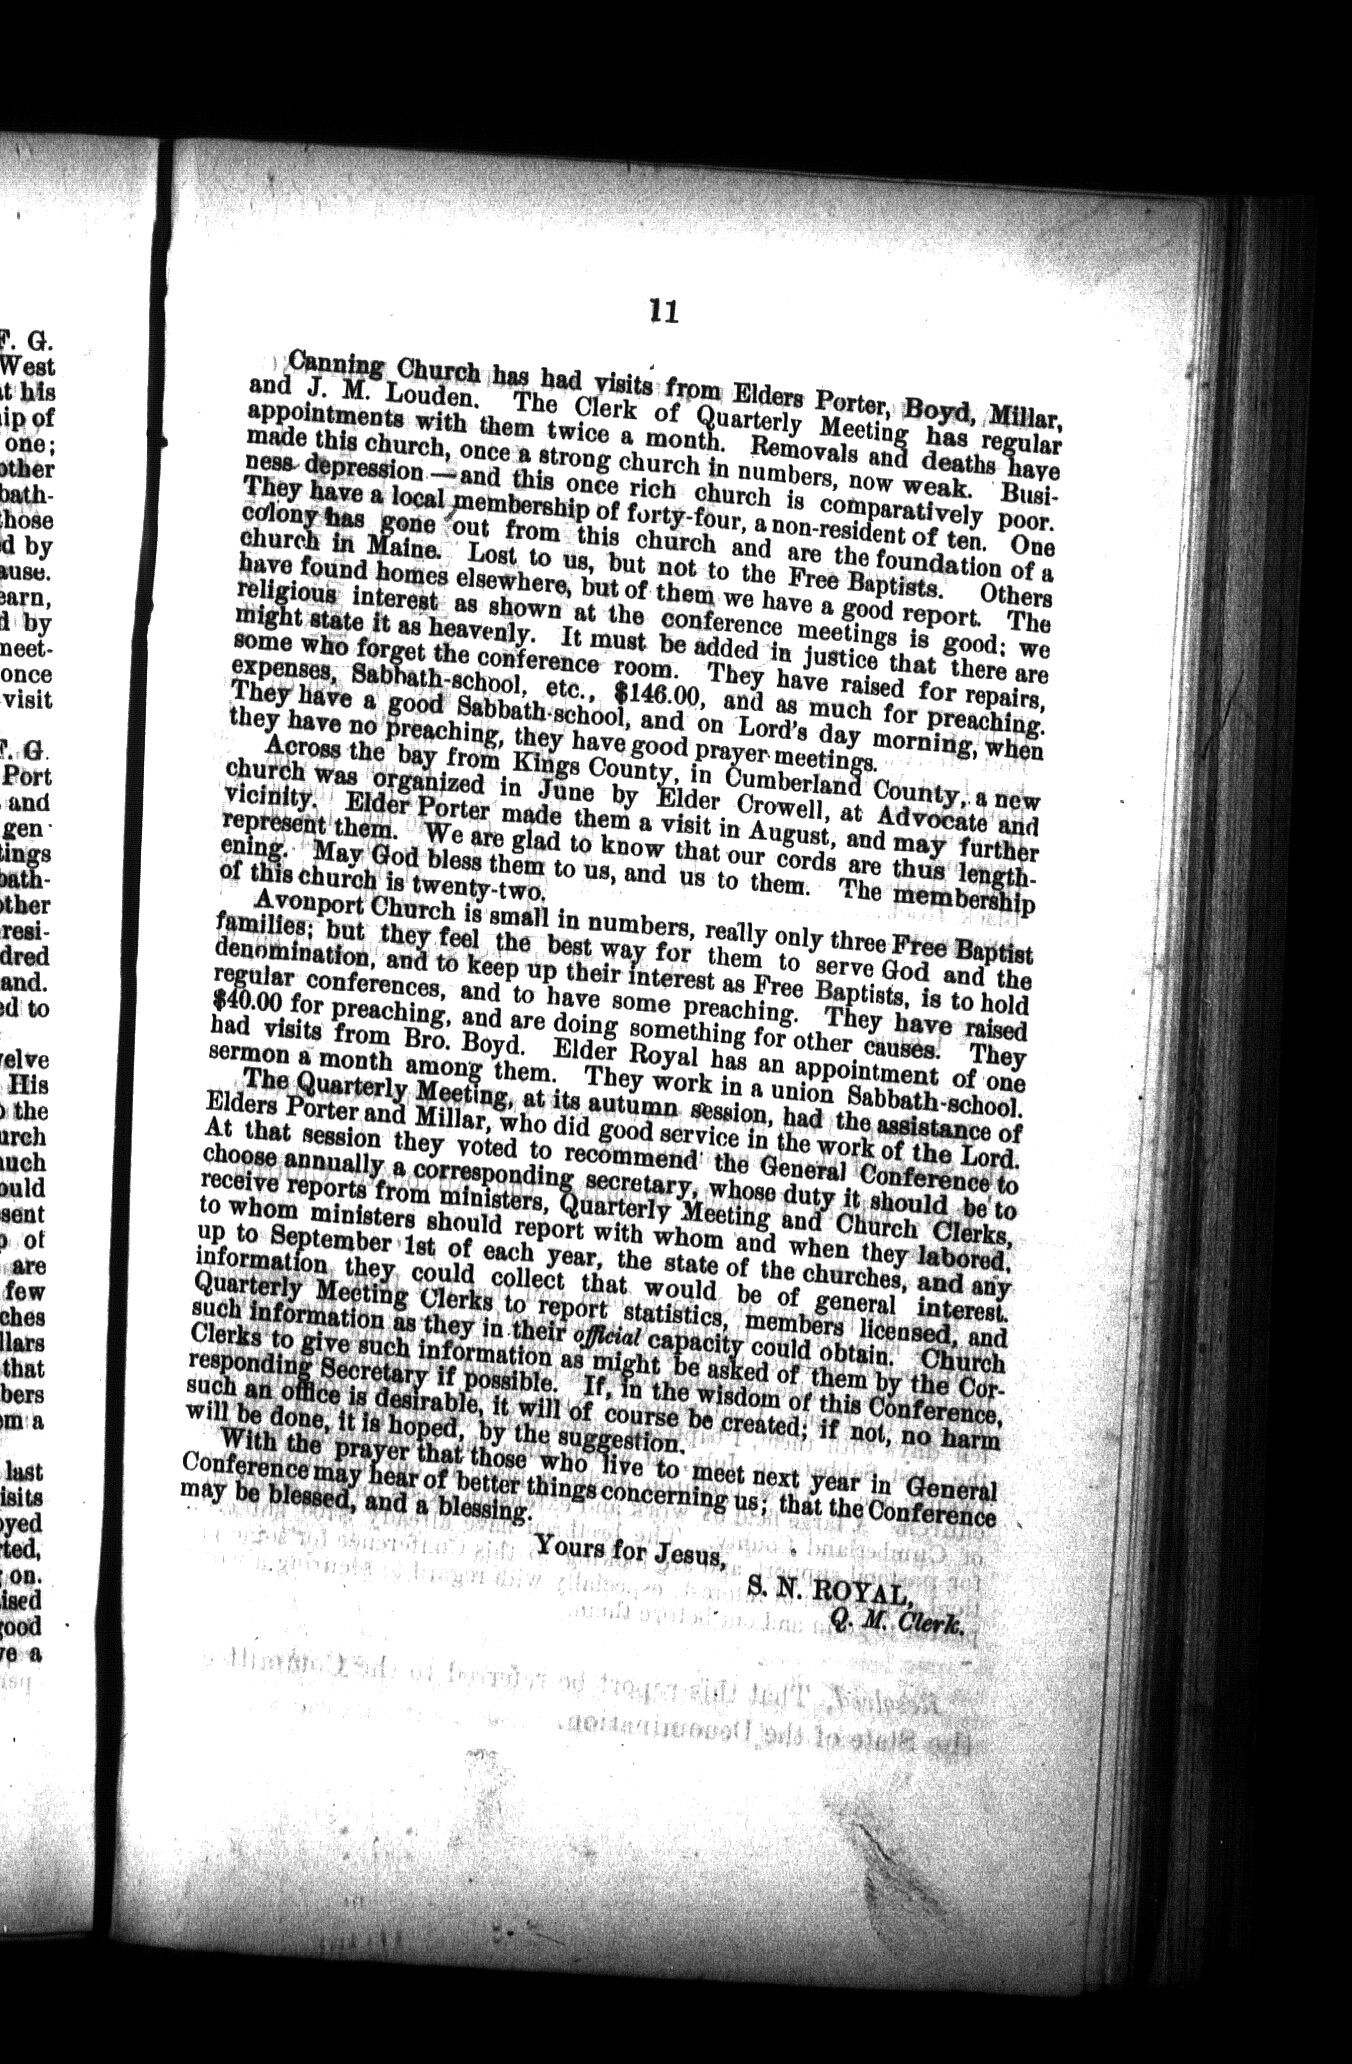 11
Canning Church has had visits from Elders Porter, Boyd, Millar,
and J. M. Louden. The Clerk of Quarterly Meeting has regular
appointments with them twice a month. Removals and deaths have
made this church, once a strong church in numbers, now weak. Busi-
ness depression—and this once rich church is comparatively poor.
They have a local membership of forty-four, a non-resident of ten. One
colony has gone out from this church and are the foundation of a
church in Maine. Lost to us, but not to the Free Baptists. Others
have found homes elsewhere, but of them we have a good report. The
religious interest as shown at the conference meetings is good; we
might state it as heavenly. It must be added in justice that there are
some who forget the conference room. They have raised for repairs,
expenses, Sabbath-school, etc., $146.00, and as much for preaching.
They have a good Sabbath-school, and on Lord's day morning, when
they have no preaching, they have good prayer-meetings.
Across the bay from Kings County, in Cumberland County, a new
church was organized in June by Elder Crowell, at Advocate and
vicinity. Elder Porter made them a visit in August, and may further
represent them. We are glad to know that our cords are thus length-
ening. May God bless them to us, and us to them. The membership
of this church is twenty-two.
Avonport Church is small in numbers, really only three Free Baptist
families; but they feel the best way for them to serve God and the
denomination, and to keep up their interest as Free Baptists, is to hold
regular conferences, and to have some preaching. They have raised
$40.00 for preaching, and are doing something for other causes. They
had visits from Bro. Boyd. Elder Royal has an appointment of one
sermon a month among them. They work in a union Sabbath-school.
The Quarterly Meeting, at its autumn session, had the assistance of
Elders Porter and Millar, who did good service in the work of the Lord.
At that session they voted to recommend the General Conference to
choose annually a corresponding secretary, whose duty it should be to
receive reports from ministers, Quarterly Meeting and Church Clerks,
to whom ministers should report with whom and when they labored,
up to September 1st of each year, the state of the churches, and any
information they could collect that would be of general interest.
Quarterly Meeting Clerks to report statistics, members licensed, and
such information as they in their official capacity could obtain. Church
Clerks to give such information as might be asked of them by the Cor-
responding Secretary if possible. If, in the wisdom of this Conference,
such an office is desirable, it will of course be created; if not, no harm
will be done, it is hoped, by the suggestion.
With the prayer that those who live to meet next year in General
Conference may hear of better things concerning us; that the Conference
may be blessed, and a blessing.
Yours for Jesus,
S. N. ROYAL,
Q. M. Clerk.